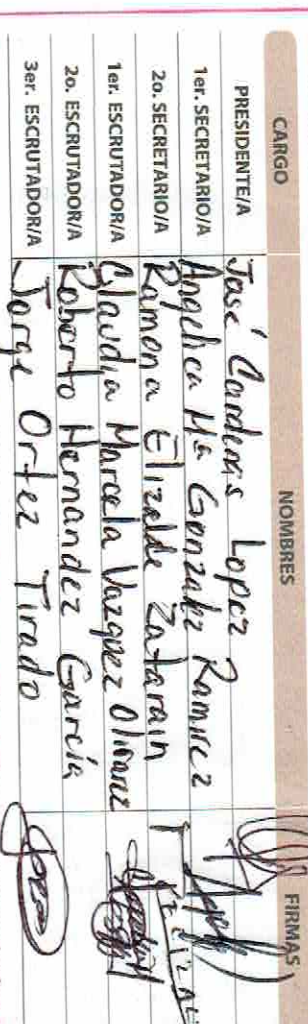 CARGO NOMBRES FIRMAS
PRESIDENTE/A José Cardenas Lopez
1er. SECRETARIO/A Angelica Ma Gonzalez Ramirez
2o. SECRETARIO/A Ramona Elizalde Zatarain
1er. ESCRUTADOR/A Claudia Marcela Vazquez Olivare
2o. ESCRUTADOR/A Roberto Hernandez García
3er. ESCRUTADOR/A Jorge Ortez Tirado